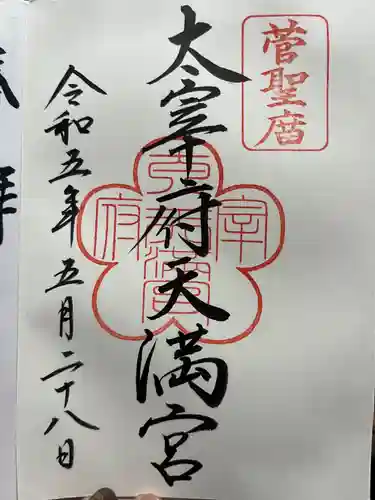 菅聖庿
太宰府天満宮
令和五年五月二十八日